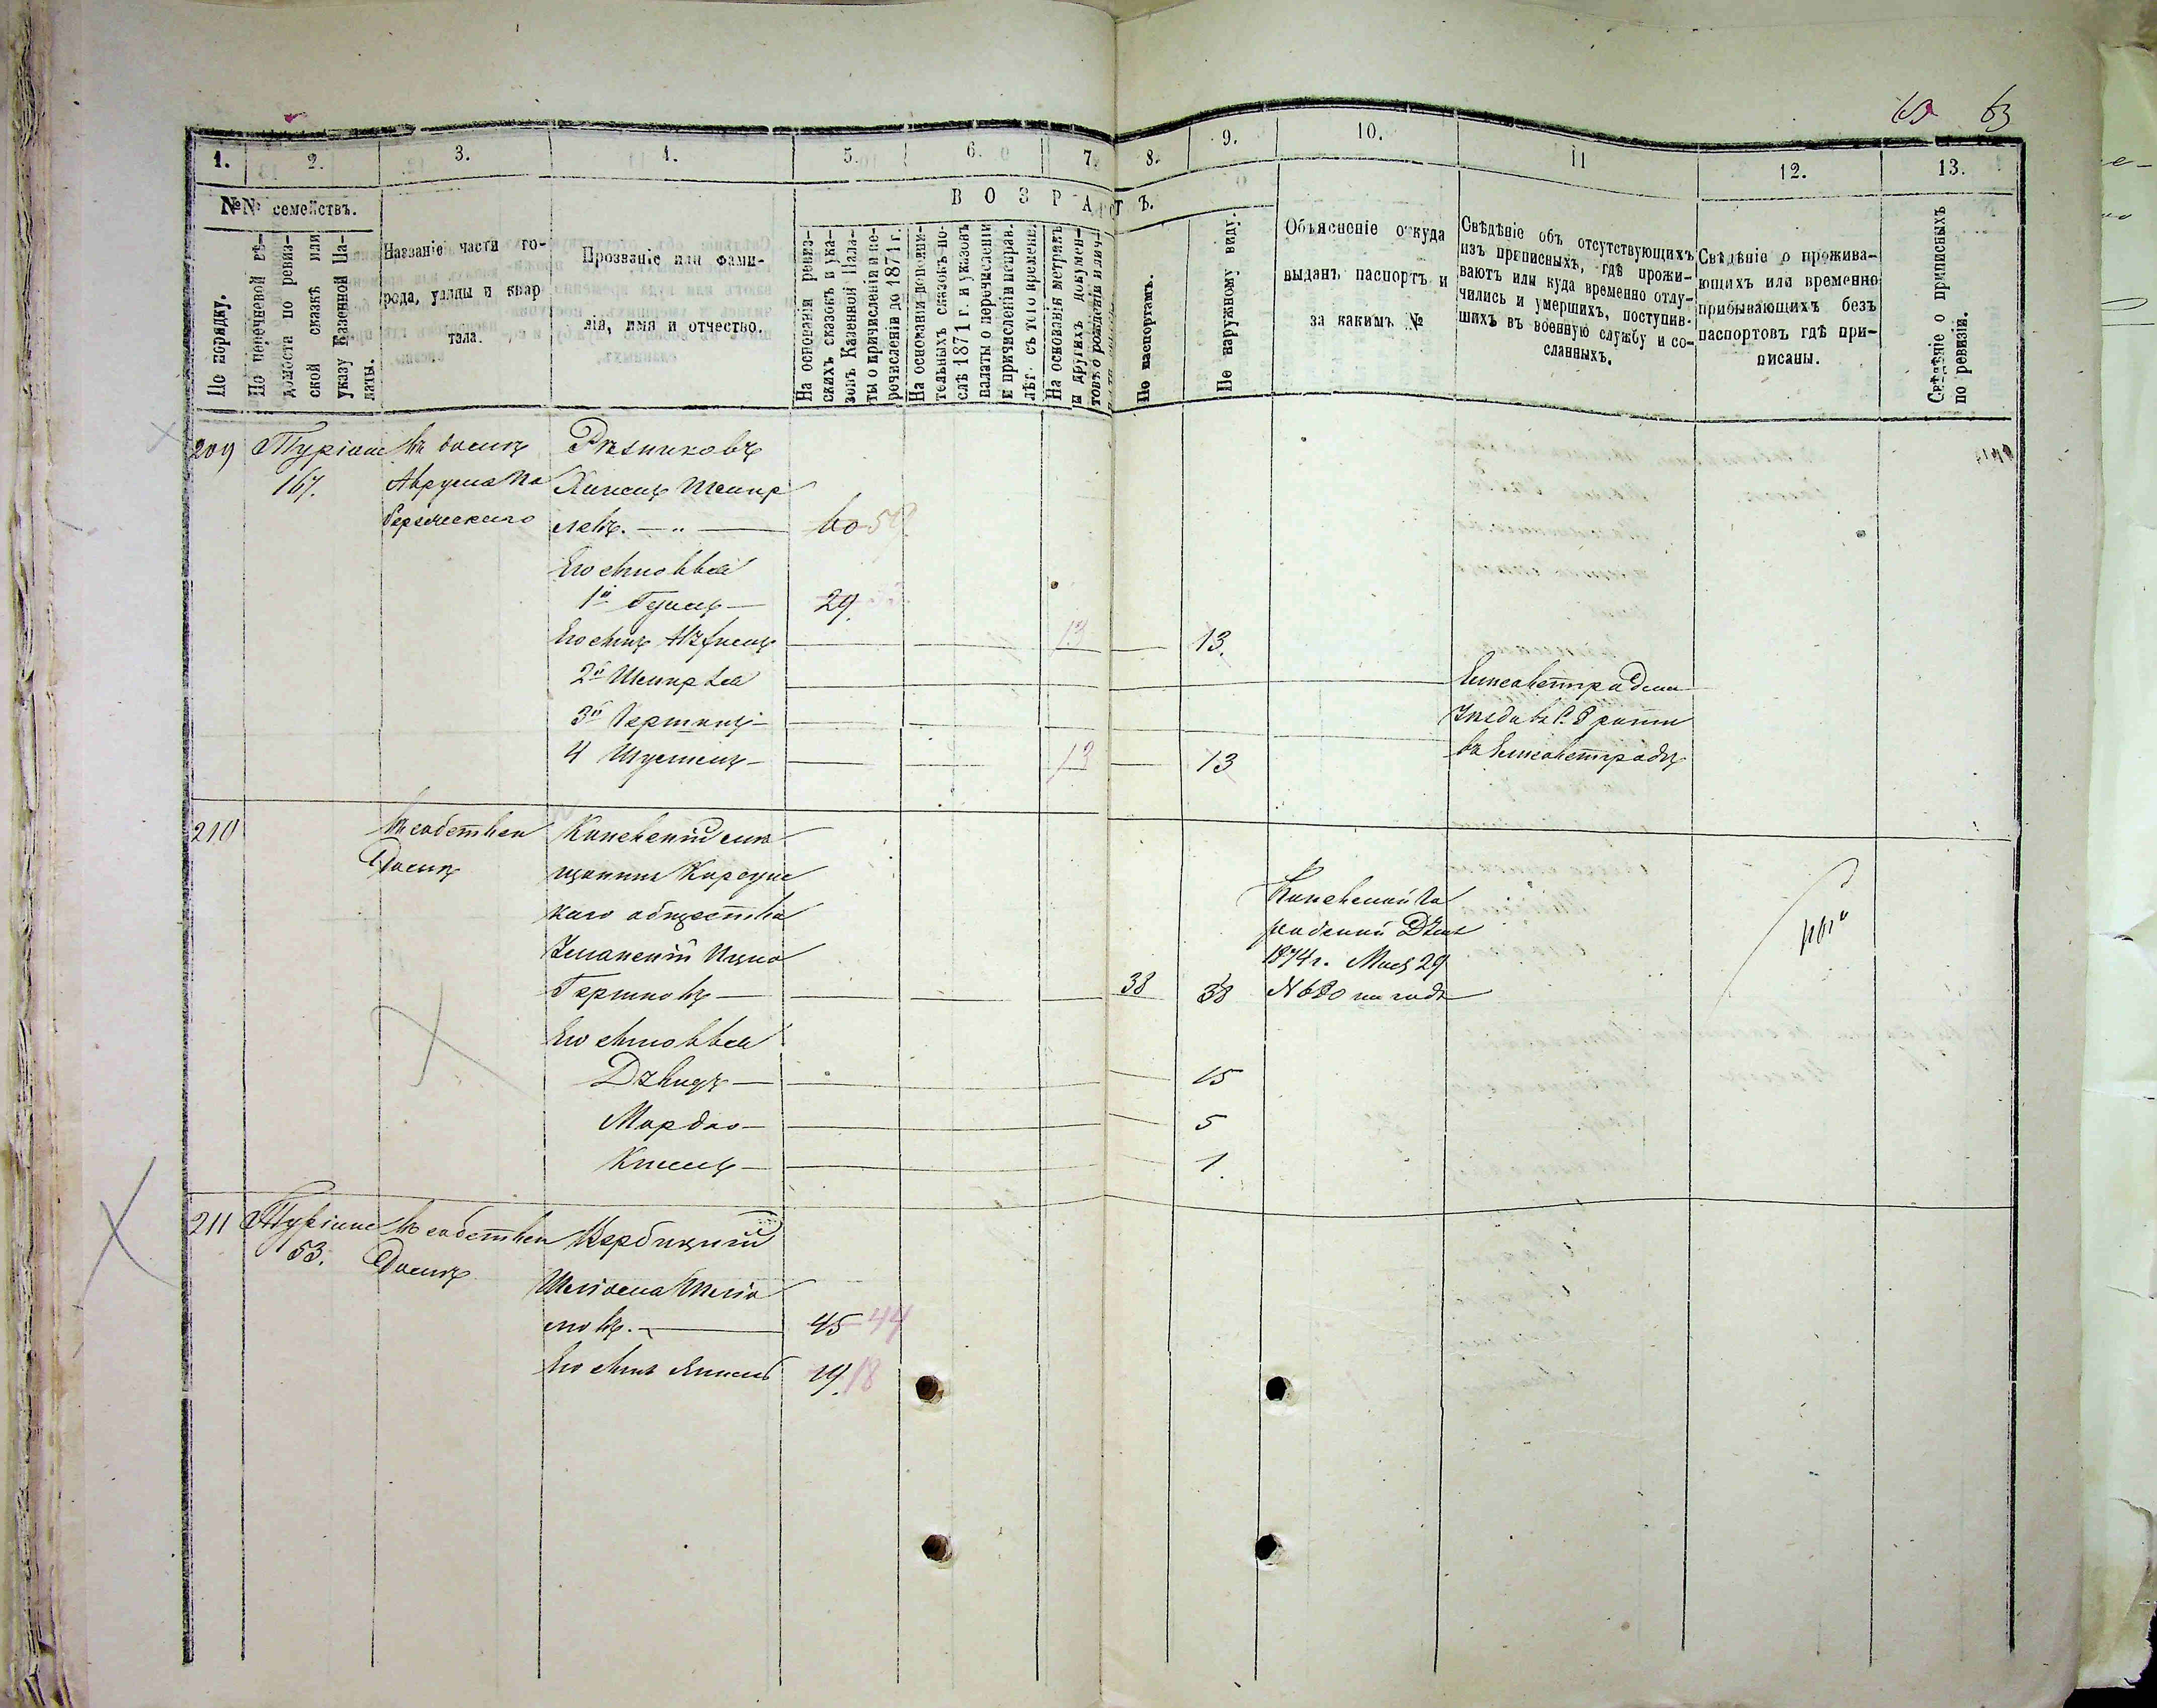 63
1. 2. 3. 4. 5. 6. 7. 8. 9. 10. 11 12. 13.
№№ семействъ.
В О З Р А С Т Ъ.
По порядку.
По перечневой вѣ-
домости по ревиз-
ской сказкѣ или
указу Казенной Па-
латы.
Названіе части го-
рода, улицы и квар
тала.
Прозваніе или фами-
лія, имя и отчество.
На основаніи ревиз-
скихъ сказокъ и ука-
зовъ Казенной Пала-
ты о причисленіи и пе-
речисленіи до 1871 г.
На основаніи дополни-
тельныхъ сказокъ по-
слѣ 1871 г. и указовъ
палаты о перечисленіи
и причисленіи неправ.
лѣт съ того времене.
На основаніи метрикъ
и другихъ докумен-
товъ о рожденіи и лич-
По паспортамъ.
По наружному виду.
Объясненіе откуда
выданъ паспортъ и
за какимъ №
Свѣдѣніе объ отсутствующихъ
изъ приписныхъ, гдѣ прожи-
ваютъ или куда временно отлу-
чились и умершихъ, поступив-
шихъ въ военную службу и со-
сланныхъ.
Свѣдѣніе о прожива-
ющихъ или временно
прибывающихъ безъ
паспортовъ гдѣ при-
писаны.
Свѣдѣніе о приписныхъ
по ревизіи.
209 Туріанс Въ домѣ Рѣзниковъ
167. Аврума По Хаимъ Шмир
бережскаго левъ. — 60 59
Его сыновья
1й — 29.
Его сынъ 13 13.
2й Шмирля Елисаветградска
3й Гершко Уѣзда въ С.
4 — 13 13 въ Елисаветградѣ
210 Въ собствен Каневскій мѣ
Домѣ щанинъ Корсунс
каго общества Каневской Го
Уманскій Ицко родской Думы
1874 г. Маія 29
Гершковъ — 38 38 N 620 на годъ
Его сыновья
Дувидъ — 15
Мордко — 5
Кисель — 1.
211 Туріанс Въ собствен Вербицкій
53. Домѣ
Шліома Шліо
мовъ. — 45 44
Его сынъ Янкель 19. 18